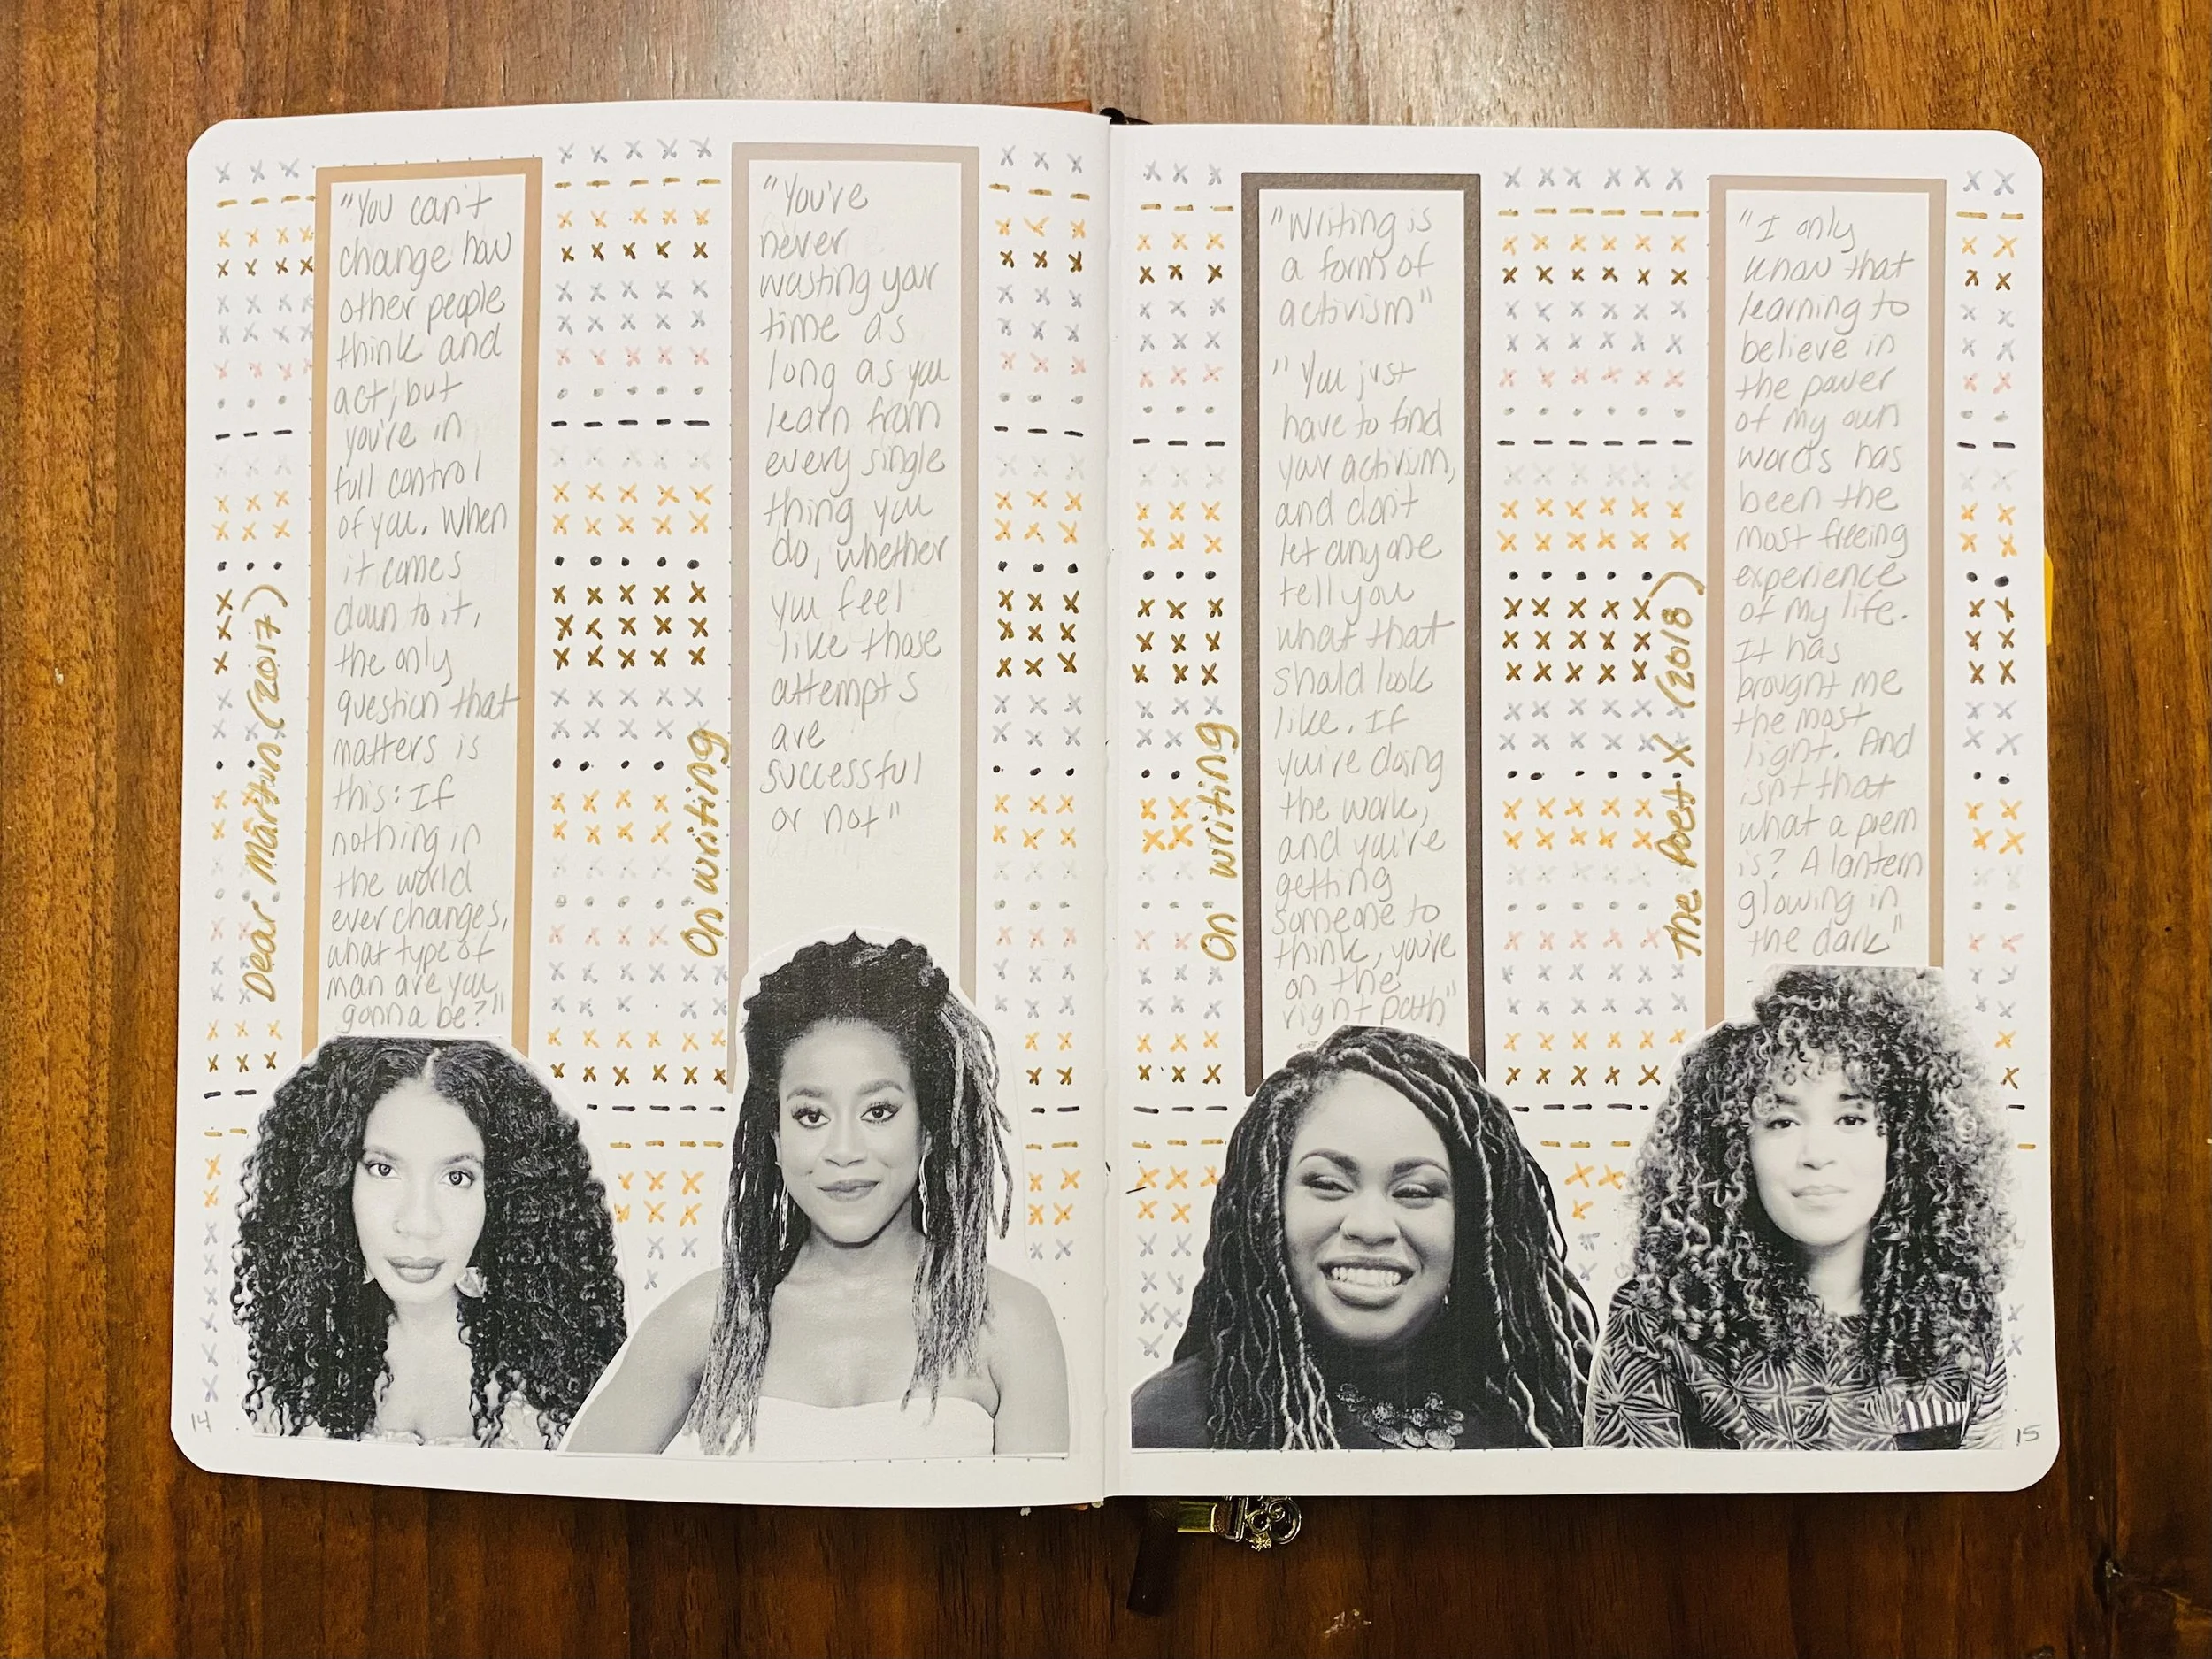 Dear Martin (2017)
"You can't
change how
other people
think and
act, but
you're in
full control
of you. When
it comes
down to it,
the only
question that
matters is
this: If
nothing in
the world
ever changes,
what type of
man are you
gonna be?"
On writing
"You've
never
wasting your
time as
long as you
learn from
every single
thing you
do, whether
you feel
like those
attempts
are
successful
or not"
On writing
"Writing is
a form of
activism"
"You just
have to find
your activism,
and don't
let anyone
tell you
what that
should look
like. If
you're doing
the work,
and you're
getting
someone to
think, you're
on the
right path"
The Poet X (2018)
"I only
know that
learning to
believe in
the power
of my own
words has
been the
most freeing
experience
of my life.
It has
brought me
the most
light. And
isn't that
what a poem
is? A lantern
glowing in
the dark"
14
15